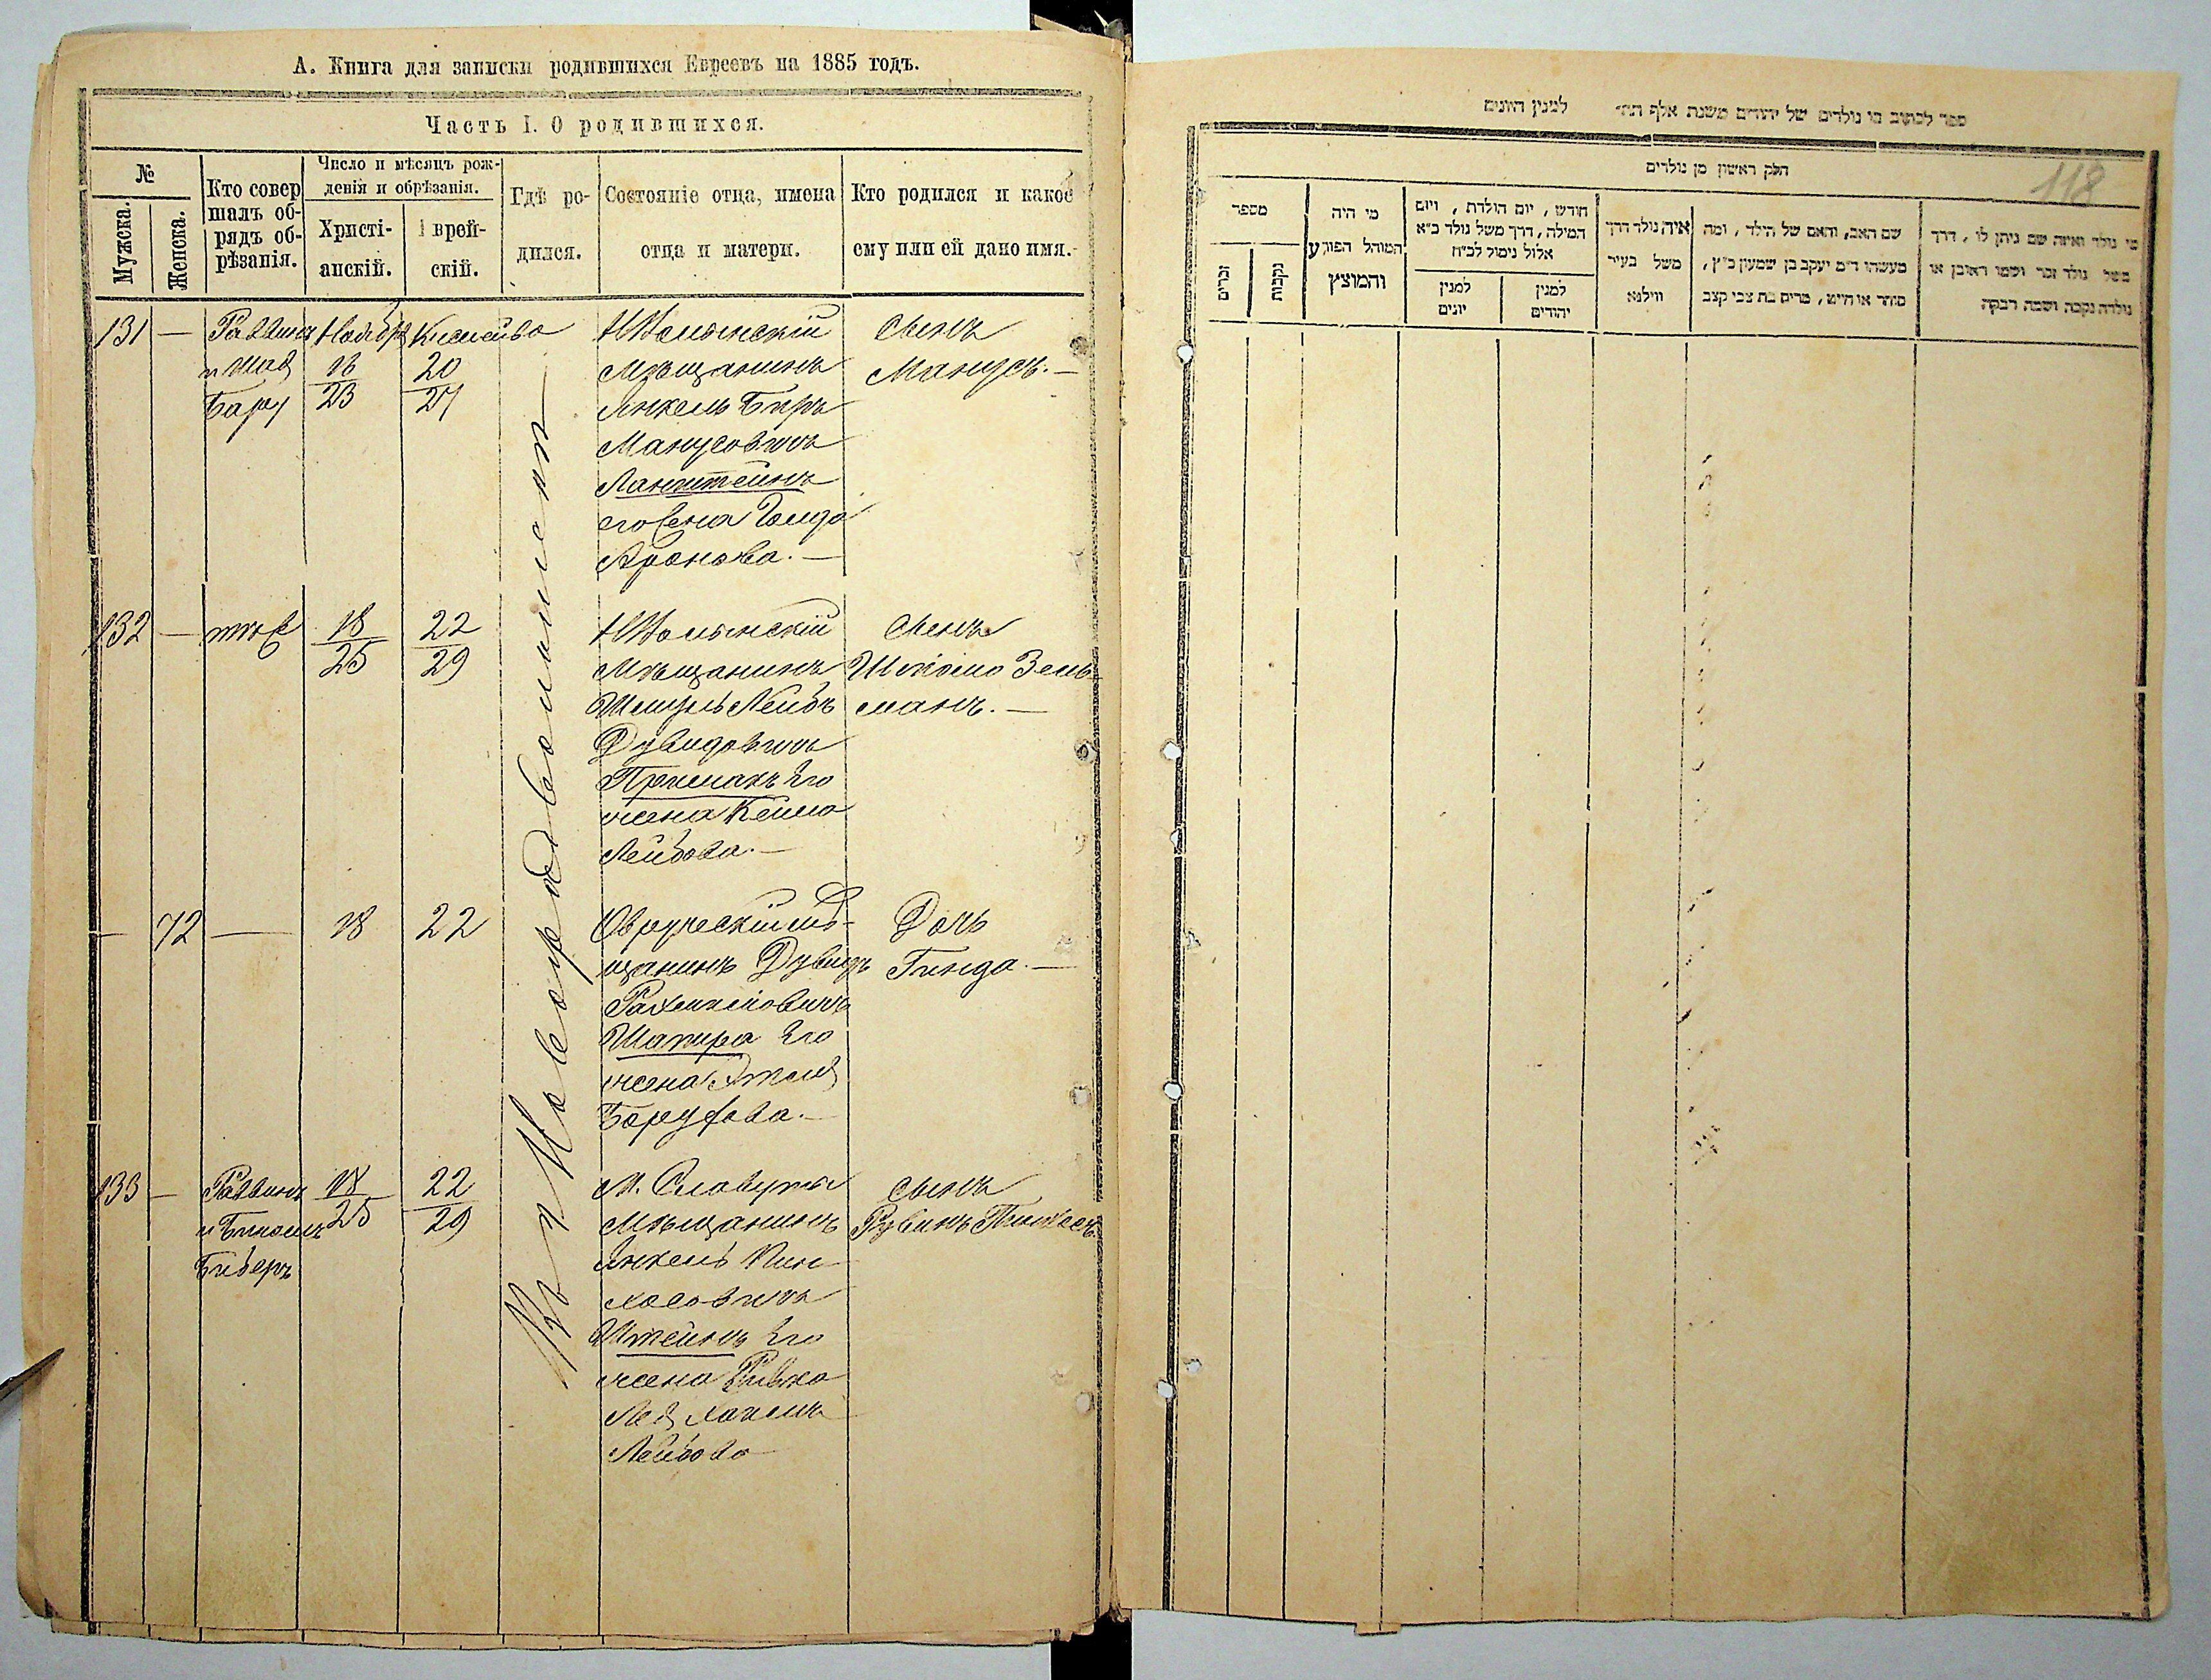 А. Книга для записки родившихся Евреевъ на 1885 годъ.
Часть I. О родившихся.
№
Мужска.
Женска.
Кто совер
шалъ об-
рядъ об-
рѣзанія.
Число и мѣсяцъ рож-
денія и обрѣзанія.
Христі-
анскій.
Еврей-
скій.
Гдѣ ро-
дился.
Состояніе отца, имена
отца и матери.
Кто родился и какое
ему или ей дано имя.
131 — Раввинъ Ноября Кислейва
и Мов
Бару
18
23
20
27
НВолынскій
Мѣщанинъ
Янкель Беръ
Манусовичъ
Ланштейнъ
его жена Голда
Аронова. —
сынъ
Манусъ. —
132 — тѣже
18
25
22
29
НВолынскій
Мѣщанинъ
Шмуль Лейбъ
Дувидовичъ
Примакъ Его
жена Кейла
Лейбова. —
сынъ
Шлёмо Зель-
манъ. —
— 72 — 18 22
Овруческій мѣ-
щанинъ Дувидъ
Рахмиловичъ
Шапира Его
жена Этель
Борухова. —
Дочь
Гинда. —
133 — Раввинъ
и Биномъ
Биберъ
18
25
22
29
М. Славуты
Мѣщанинъ
Янкель Пин-
хосовичъ
Штейнъ Его
жена Ривка
Лея
Лейбова
сынъ
Рувинъ Пинхосъ.
Въ Новоградволынскѣ
118
ספר לכתוב בו נולדים של יהודים משנת אלף למנין היונים
חלק ראשון מן נולדים
מספר
זכרים
נקבות
מי היה
המוהל הפורע
והמוצץ
חודש, יום הולדת, ויום
המילה, דרך משל נולד כ״א
אלול נימול לכ״ח
למנין
יונים
למנין
יהודים
איה נולד דרך
משל בעיר
ווילנא
שם האב, והאם של הילד, ומה
מעשהו ד״מ יעקב בן שמעון כ״ץ,
סוחר או חייט, מרים בת צבי קצב
מי נולד ואיזה שם ניתן לו, דרך
משל נולד זכר ושמו ראובן או
נולדה נקבה ושמה רבקה